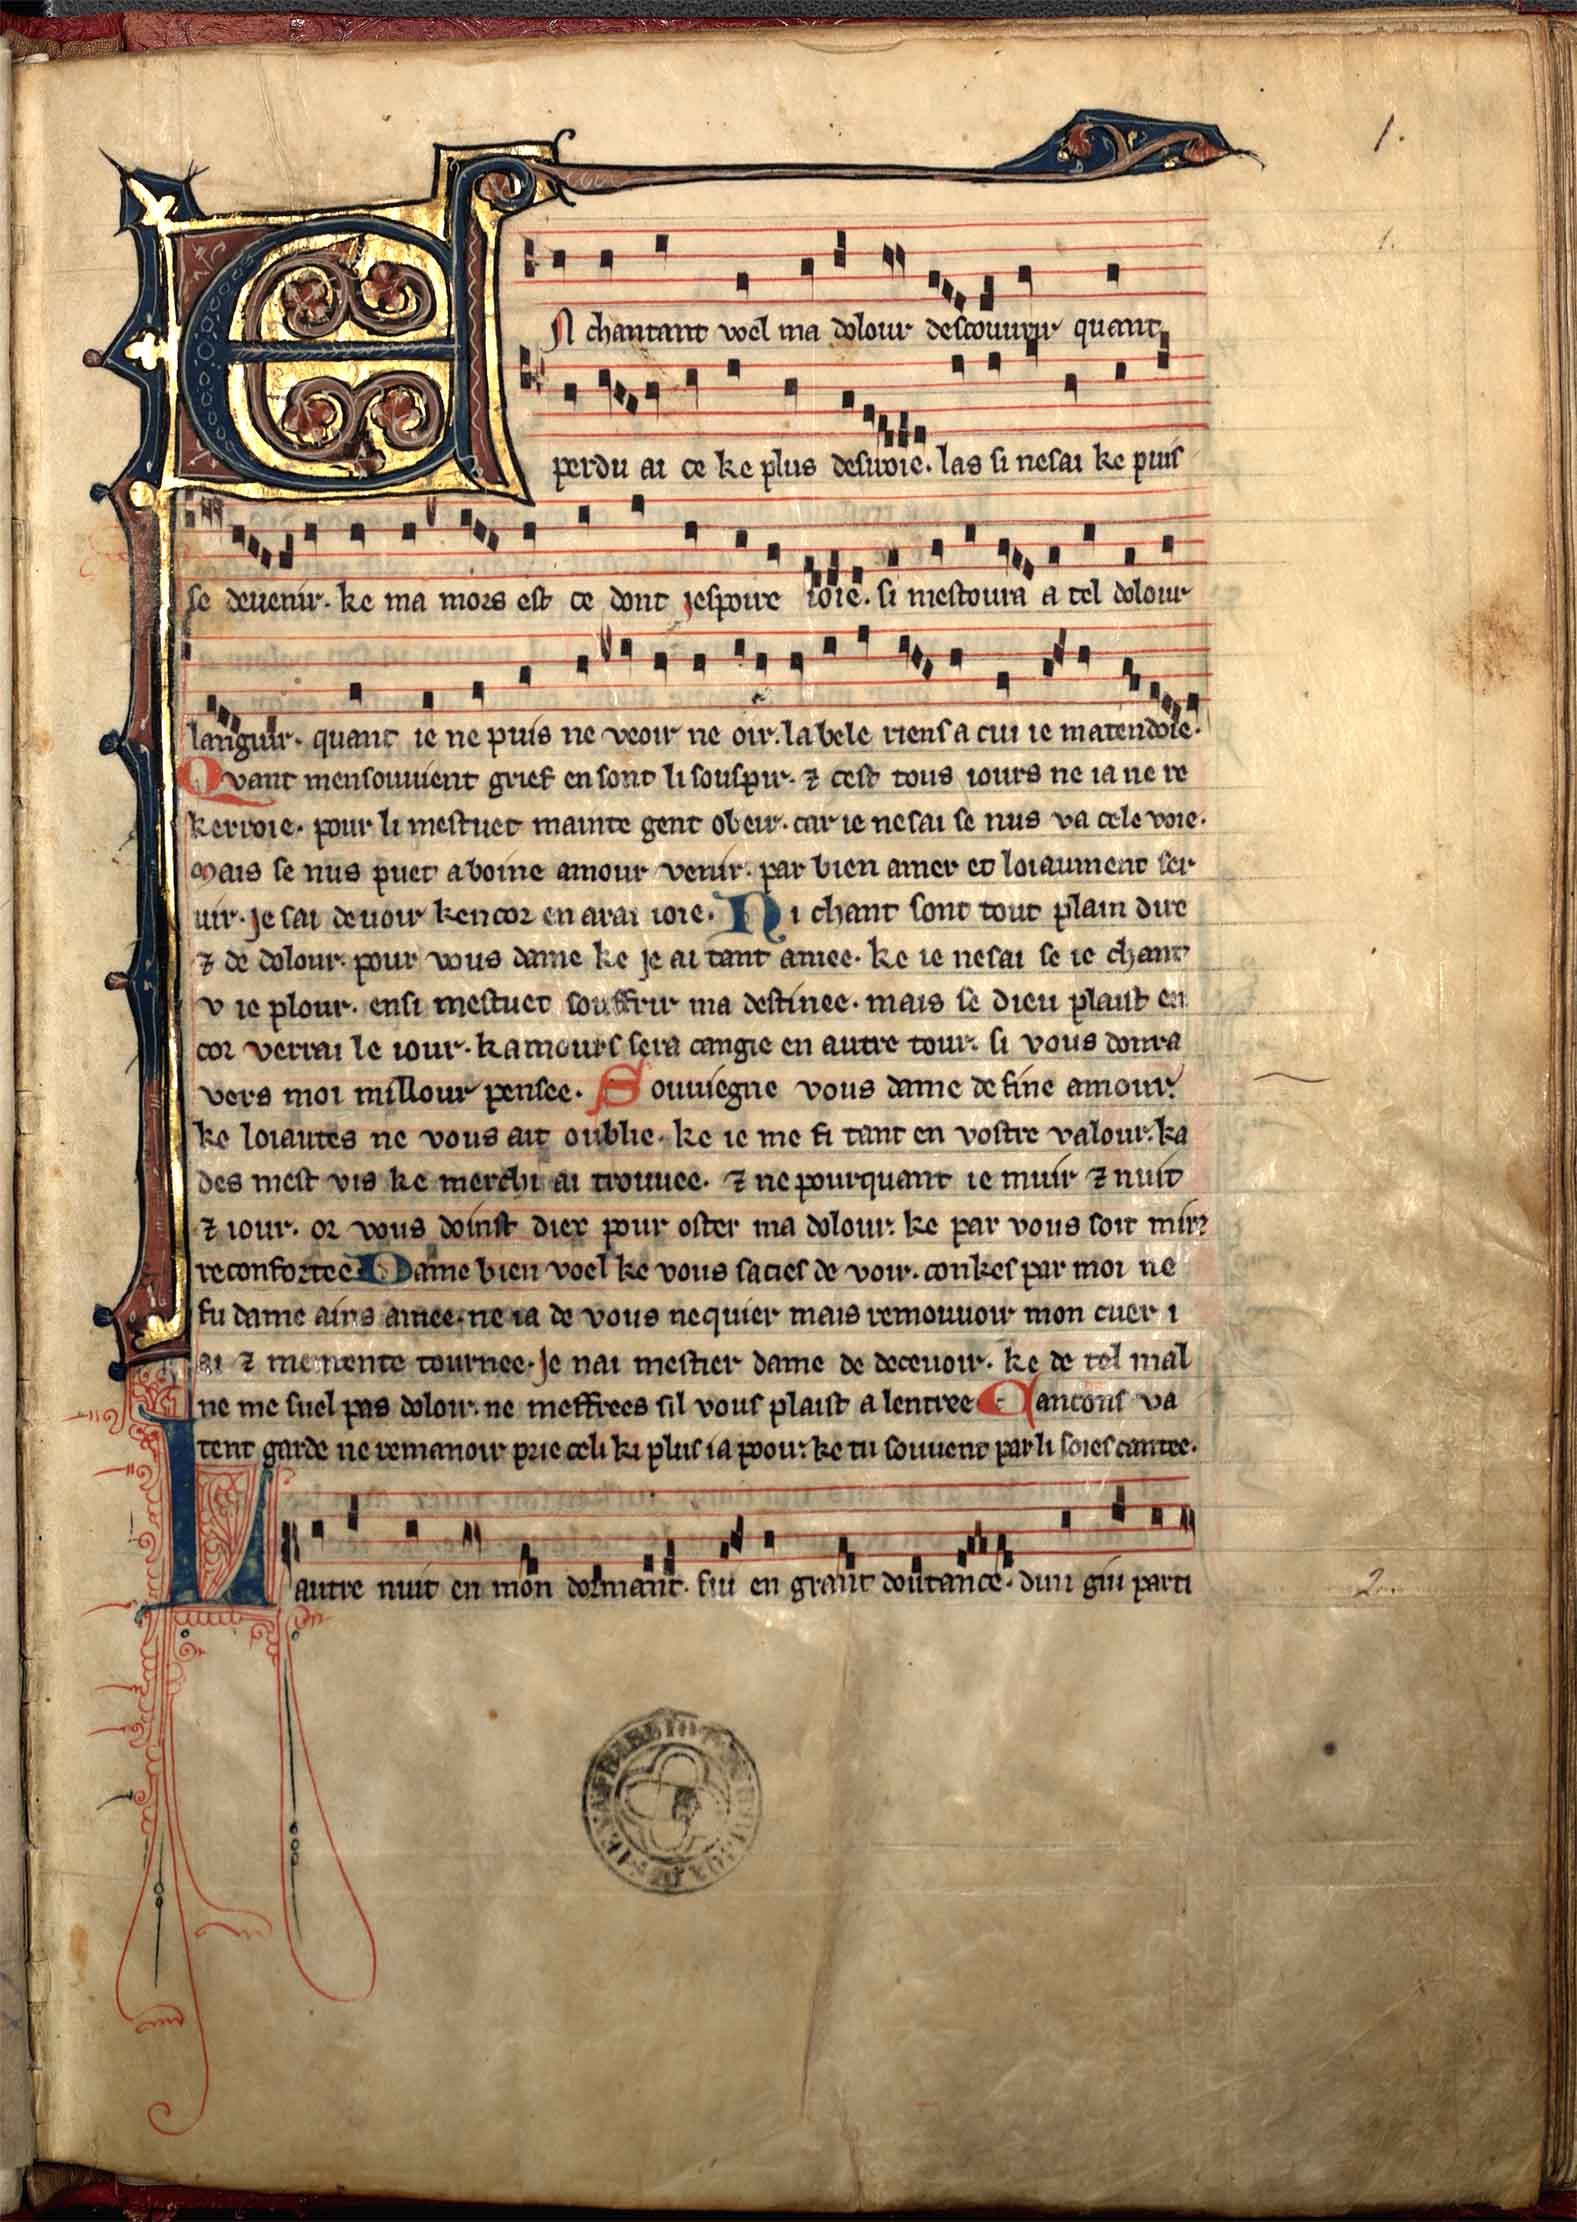 1.
1.
En chantant voel ma dolour descouurir quant
perdu ai ce ke plus desiroie. las si nesai ke puis
se deuenir. ke ma mors est ce dont jespoire ioie. si mestoura a tel dolour
languir. quant ie ne puis ne veoir ne oir. la bele riens a cui ie matendoie.
Qvant mensouuient grief en sont li souspir. ⁊ cest tous iours ne ia ne re
kerroie. pour li mestuet mainte gent obeir. car ie nesai se nus va cele voie.
Mais se nus puet a boine amour venir. par bien amer et loiaument ser
uir. je sai de uoir kencor en arai ioie. Mi chant sont tout plain dire
⁊ de dolour. pour vous dame ke je ai tant amee. ke ie nesai se ie chant
v ie plour. ensi mestuet souffrir ma destinee. mais se dieu plaist en
cor verrai le iour. kamours sera cangie en autre tour. si vous donra
vers moi millour pensee. Souuiegne vous dame de fine amour.
ke loiautes ne vous ait oublie. ke ie me fi tant en vostre valour. ka
des mest vis ke merchi ai trouuee. ⁊ ne pourquant ie muir ⁊ nuit
⁊ iour. or vous doinst diex pour oster ma dolour. ke par vous soit
reconfortee Dame bien voel ke vous sacies de voir. conkes par moi ne
fu dame ains amee. ne ia de vous nequier mais remouuoir mon cuer i
ai ⁊ mententente tournee. Je nai mestier dame de deceuoir. ke de tel mal
ne me suel pas doloir. ne meffrees sil vous plaist a lentree Cancons va
tent garde ne remanoir prie celi ki plus ia pooir. ke tu souuent par li soies cantee.
Lautre nuit en mon dormant. fui en grant doutance. dun giu parti
2.